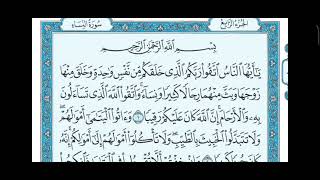 الجزء الرابع
سورة النساء
بِسْمِ اللَّهِ الرَّحْمَٰنِ الرَّحِيمِ
يَٰٓأَيُّهَا النَّاسُ اتَّقُوا رَبَّكُمُ الَّذِى خَلَقَكُم مِّن نَّفْسٍ وَٰحِدَةٍ وَخَلَقَ مِنْهَا
زَوْجَهَا وَبَثَّ مِنْهُمَا رِجَالًا كَثِيرًا وَنِسَآءً وَاتَّقُوا اللَّهَ الَّذِى تَسَآءَلُونَ
بِهِ وَالْأَرْحَامَ إِنَّ اللَّهَ كَانَ عَلَيْكُمْ رَقِيبًا ١ وَءَاتُوا الْيَتَٰمَىٰٓ أَمْوَٰلَهُمْ
وَلَا تَتَبَدَّلُوا الْخَبِيثَ بِالطَّيِّبِ وَلَا تَأْكُلُوٓا أَمْوَٰلَهُمْ إِلَىٰٓ أَمْوَٰلِكُمْ إِنَّهُ